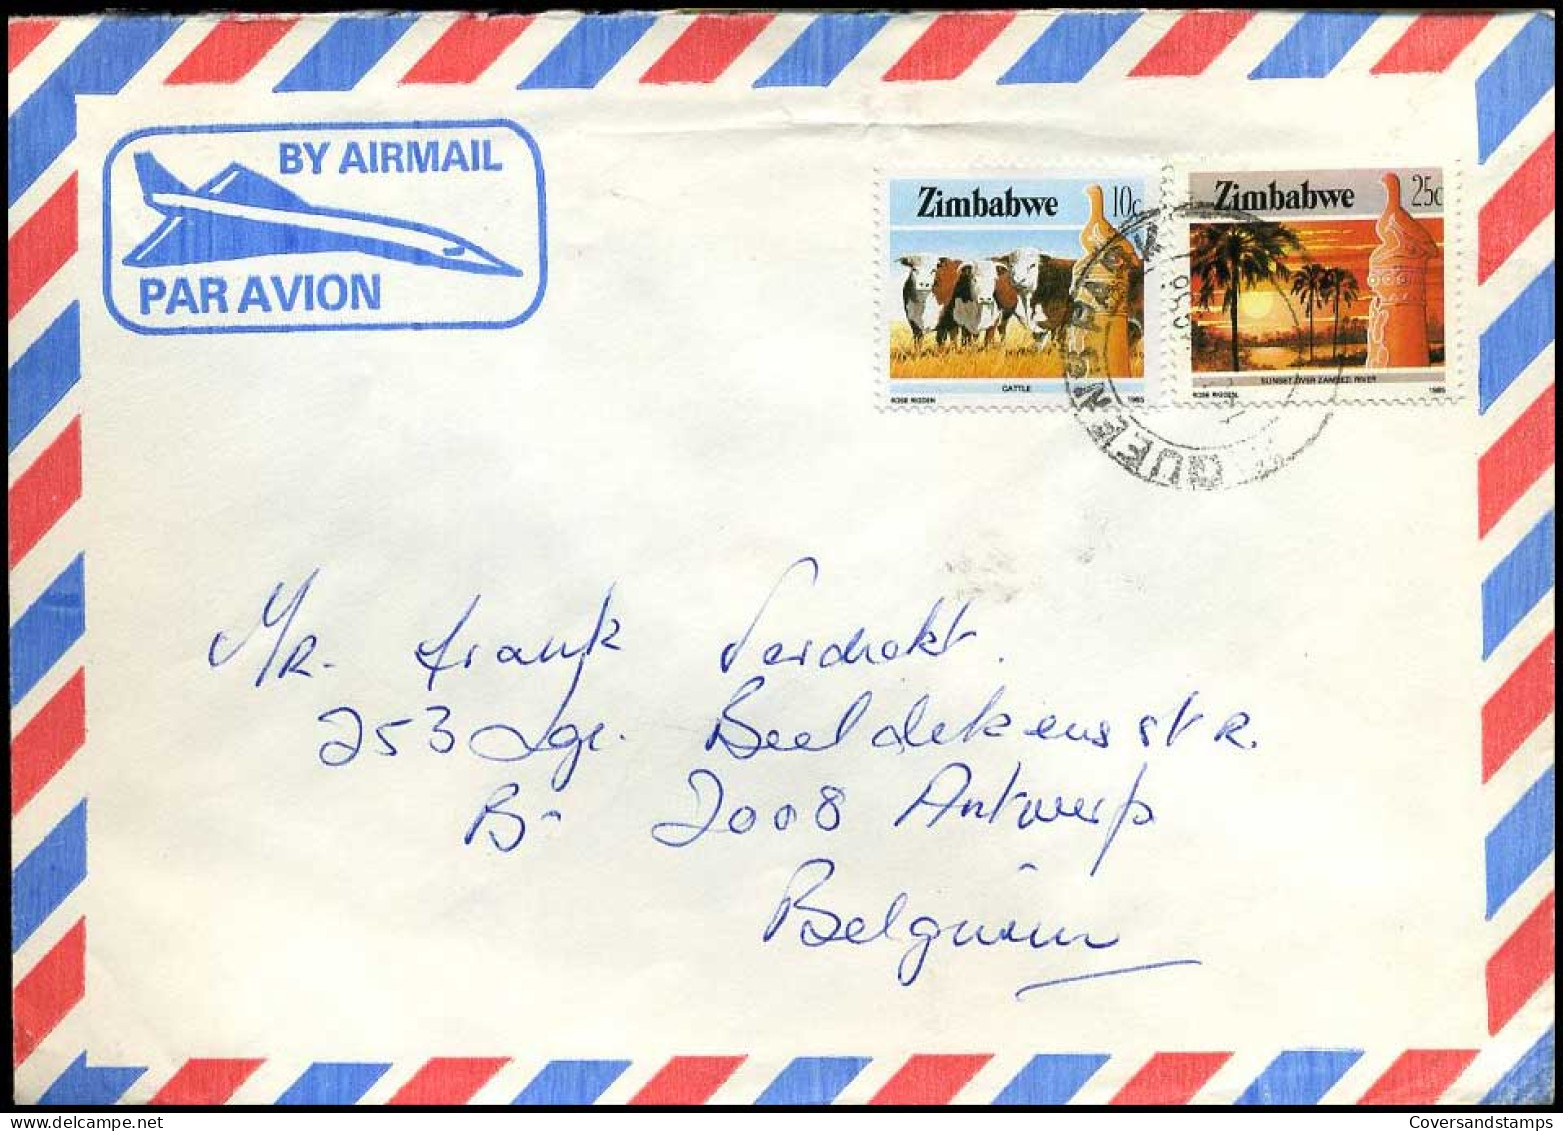 BY AIRMAIL
PAR AVION
Zimbabwe 10c
CATTLE
ROSE RIGDEN 1985
Zimbabwe 25c
SUNSET OVER ZAMBEZI RIVER
ROSE RIGDEN 1985
QUEEN
MR. Frank Verdrokt.
253 Lge. Beeldekensstr.
B- 2008 Antwerp
Belgium
Coversandstamps